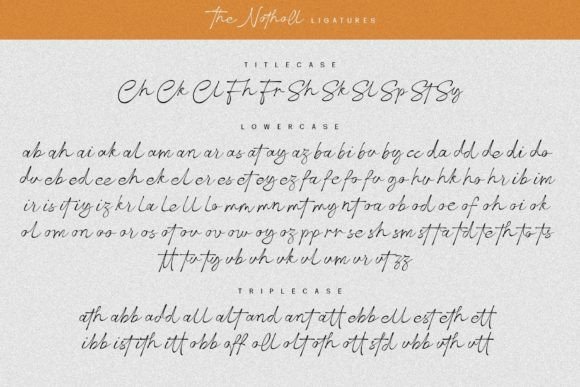 the Notholl LIGATURES
TITLECASE
Ch Ck Cl Fh Fr Sh Sk Sl Sp St Sy
LOWERCASE
ab ah ai ak al am an ar as at ay az ba bi bu by cc da dd de di do
du eb ed ee eh ek el er es et ey ez fa fe fo fu go hu hk ho hr ib im
ir is it iy iz kr la le ll lo mm mn mt my nt oa ob od oe of oh oi ok
ol om on oo or os ot ou ov ow oy oz pp rr se sh sm st ta td te th to ts
tt tu ty ub uh uk ul um ur ut zz
TRIPLECASE
ath abb add all alt and ant att ebb ell est eth ett
ibb ist ith itt obb off oll olt oth ott std ubb uth utt